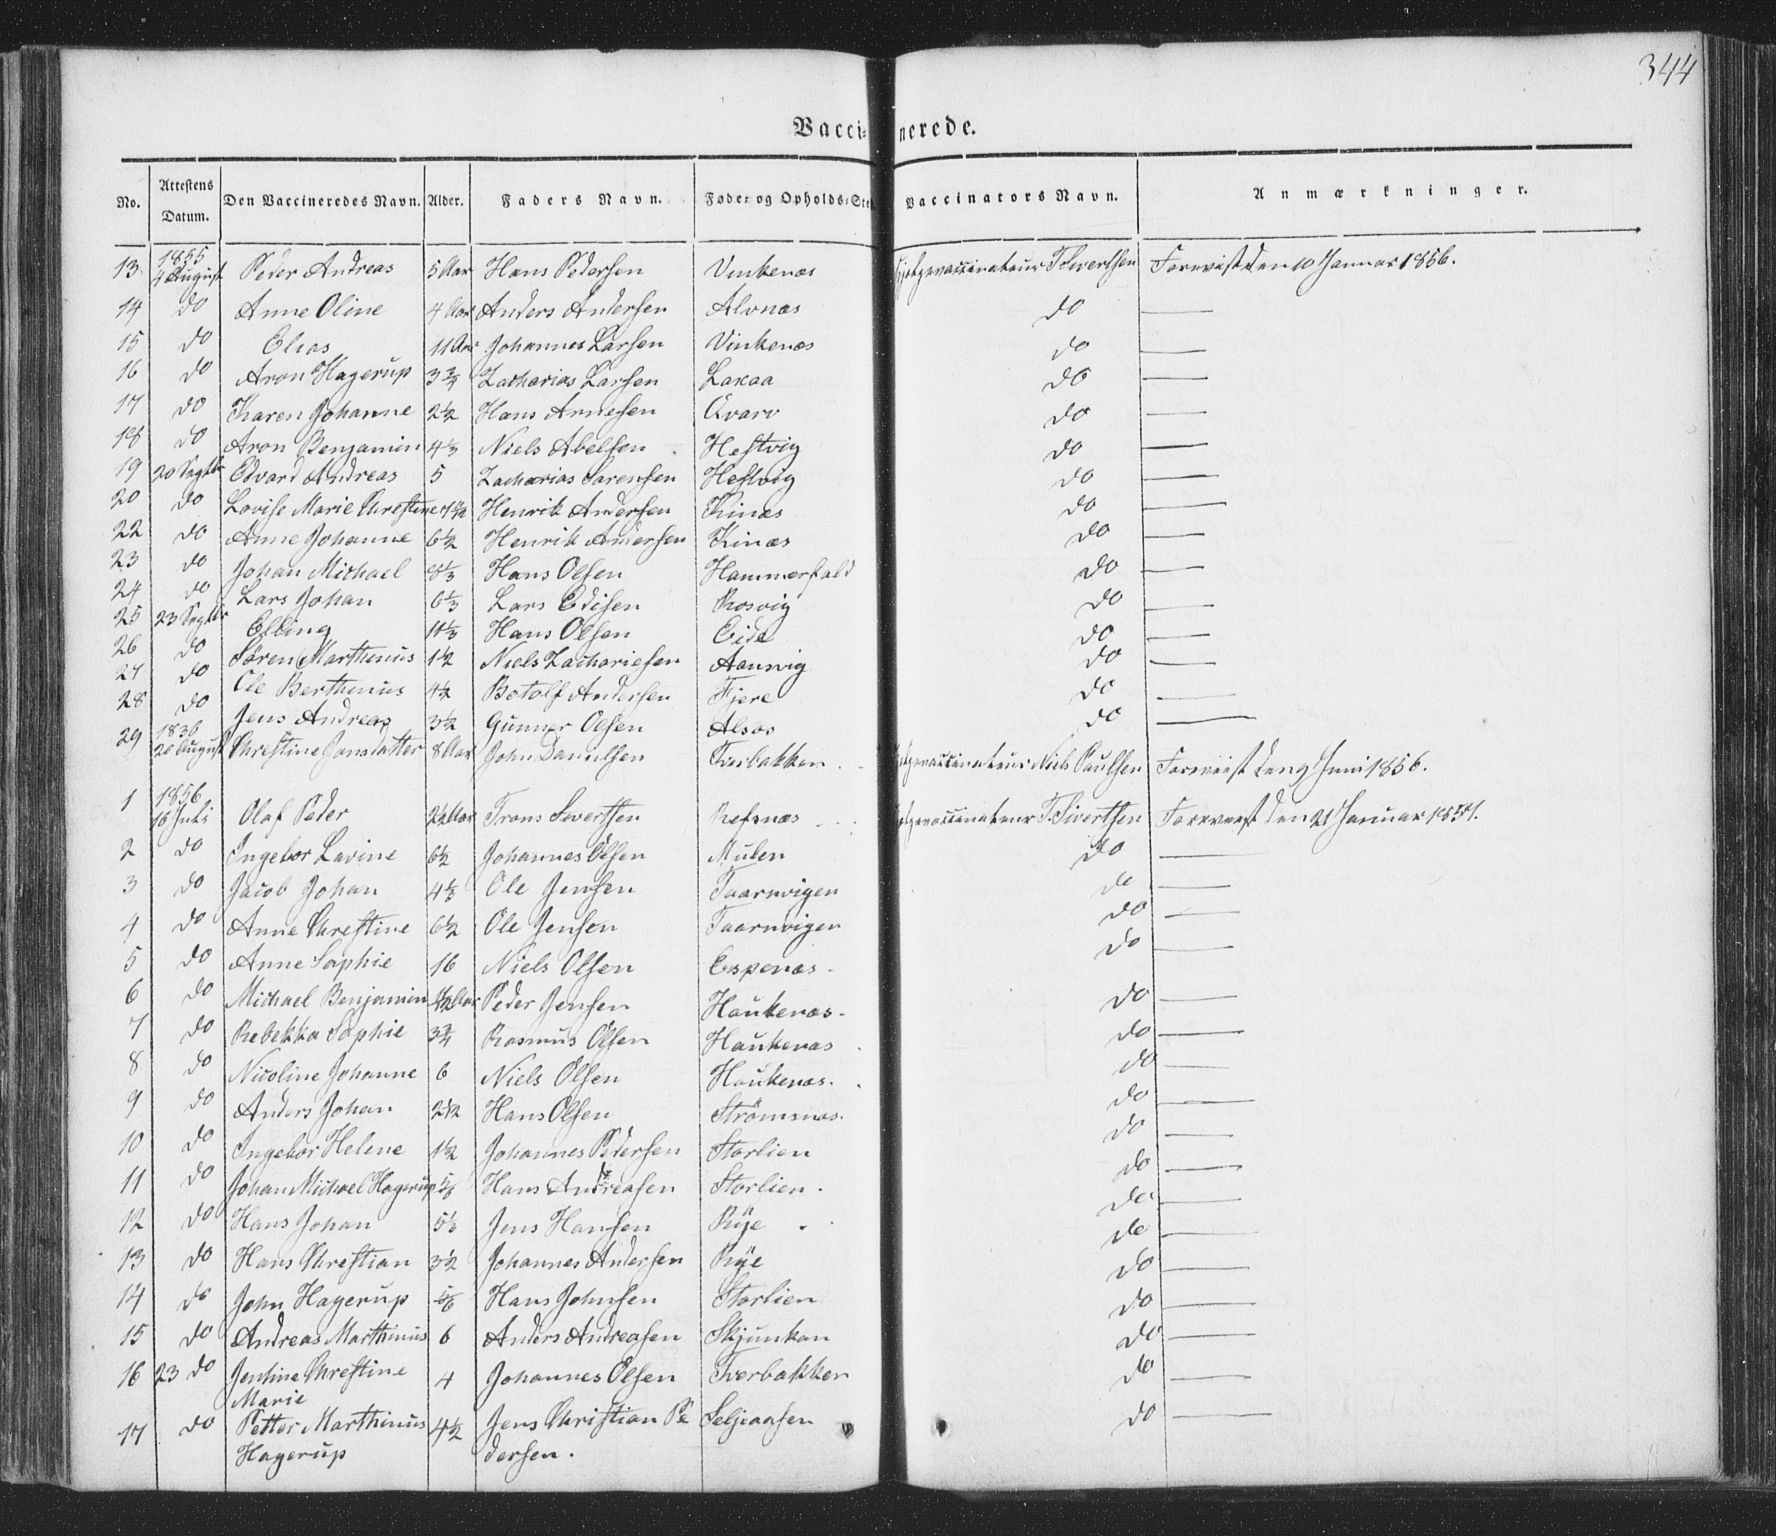 344
Vaccinerede.
No. Attestens Datum. Den Vaccineredes Navn. Alder. Faders Navn. Føde- og Opholds-Sted Vaccinators Navn. Anmærkninger.
13. 1855 4 August Peder Andreas 5 Aar Hans Pedersen Vinkenæs T Sivertsen Forevist den 10 Januar 1856.
14 do Anne Oline 4 Aar Anders Andersen Alvnæs do —
15 do Elias 11 Aar Johannes Larsen Vinkenæs do —
16 do Aron Hagerup 3 3/4 Zacharias Larsen Laxaa do —
17 do Karen Johanne 2 1/2 Hans Arnesen Qvarv do —
18 do Aron Benjamin 4 1/3 Niels Abelsen Hestvig do —
19 20 Septbr Edvard Andreas 5 Zacharias Sørensen Hestvig do —
20 do Lovise Marie Chrestine 1 1/2 Henrik Andersen Kinæs do —
22 do Anne Johanne 6 1/2 Henrik Andersen Kinæs do —
23 do Johan Michael 8 1/3 Hans Olsen Hammerfald do —
24 do Lars Johan 6 1/3 Lars Edisen Rosvig do —
25 23 Septbr Elling 11 1/3 Hans Olsen Eide do —
26 do Sören Marthinus 1 1/2 Niels Zachariesen Aansvig do —
27 do Ole Berthinus 4 1/2 Botolf Andersen Fjere do —
28 do Jens Andreas 3 1/2 Gunner Olsen Alsos do —
29 1836 20 August Chrestine Jonsdatter 8 Aar John Danielsen Tverbakken Niels Paulsen Foreviist den 9 Juni 1856.
1 1856 16 Juli Olaf Peder 2 1/2 Aar Trons Sivertsen Refsnæs T. Sivertsen Foreviist den 21 Januar 1857.
2 do Ingebor Lavine 6 1/2 Johannes Olsen Mulen do —
3 do Jacob Johan 4 1/3 Ole Jensen Taarnvigen do —
4 do Anne Chrestine 6 1/2 Ole Jensen Taarnvigen do —
5 do Anne Sophie 16 Niels Olsen Espenæs do —
6 do Michael Benjamin 4 1/2 Aar Peder Jensen Haukenæs do —
7 do Rebekka Sophie 3 3/4 Rasmus Olsen Haukenæs do —
8 do Nicoline Johanne 6 Niels Olsen Haukenæs. do —
9 do Anders Johan 2 1/2 Hans Olsen Strömsnæs. do —
10 do Ingebor Helene 1 1/2 Johannes Pedersen Storlien do —
11 do Johan Michael Hagerup 5/6 Hans Andreasen Storlien. do —
12 do Hans Johan 5 1/3 Jens Hansen Rÿe do —
13 do Hans Chrestian 3 1/2 Johannes Andersen Rÿe do —
14 do John Hagerup 5/6 Hans Johnsen Storlien do —
15 do Andreas Marthinus 6 Anders Andreasen Skjunkan do —
16 23 do Jentine Chrestine 4 Johannes Olsen Tverbakken do —
Marie
17 do Petter Marthinus 4 1/2 Jens Christian Pe Seljeaasen do —
Hagerup dersen.